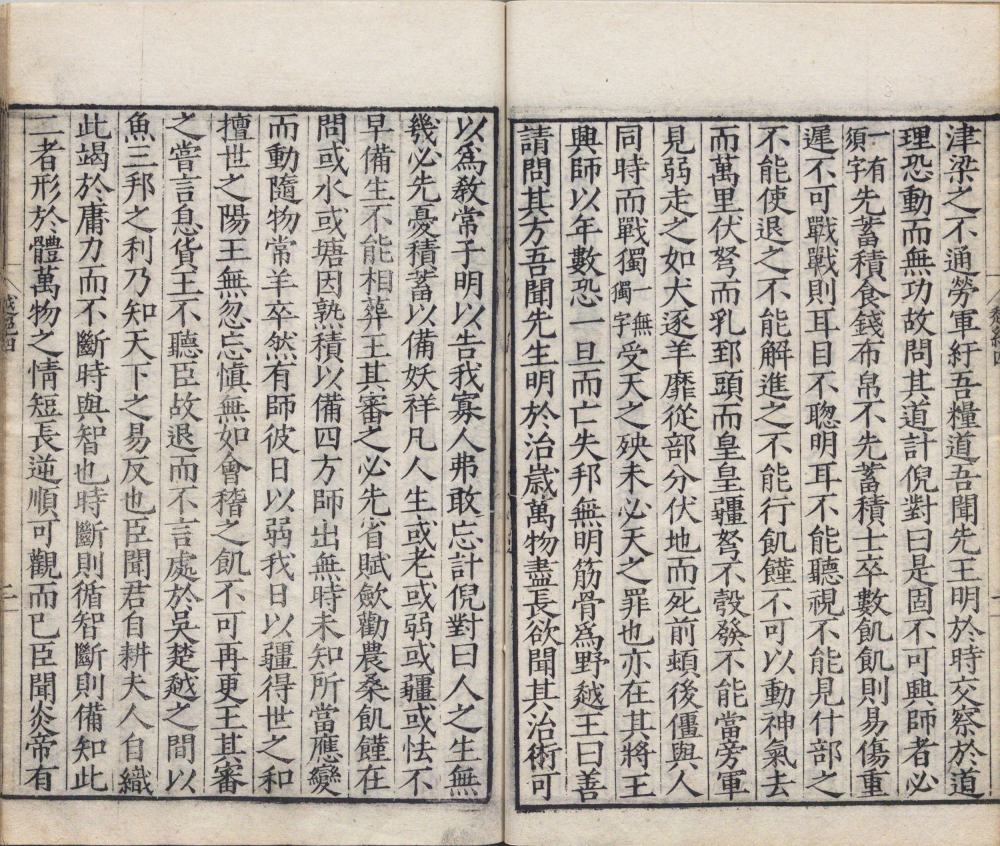 津梁之不通勞軍紆吾糧道吾聞先王明於時交察於道
理恐動而無功故問其道計倪對曰是固不可興師者必
一有須字先蓄積食錢布帛不先蓄積士卒數飢飢則易傷重
遲不可戰戰則耳目不聦明耳不能聽視不能見什部之
不能使退之不能解進之不能行飢饉不可以動神氣去
而萬里伏弩而乳郅頭而皇皇彊弩不彀發不能當旁軍
見弱走之如犬逐羊靡從部分伏地而死前頓後僵與人
同時而戰獨一無獨字受天之殃未必天之罪也亦在其將王
興師以年數恐一旦而亡失邦無明筋骨爲野越王曰善
請問其方吾聞先生明於治歳萬物盡長欲聞其治術可
以爲敎常子明以告我寡人弗敢忘計倪對曰人之生無
幾必先憂積蓄以備妖祥凡人生或老或弱或彊或怯不
早備生不能相葬王其審之必先省賦歛勸農桑飢饉在
問或水或塘因熟積以備四方師出無時未知所當應變
而動隨物常羊卒然有師彼日以弱我日以彊得世之和
擅世之陽王無忽忘愼無如會稽之飢不可再更王其審
之嘗言息貨王不聽臣故退而不言處於吳楚越之間以
魚三邦之利乃知天下之易反也臣聞君自耕夫人自織
此竭於庸力而不斷時與智也時斷則循智斷則備知此
二者形於體萬物之情短長逆順可觀而已臣聞炎帝有
越絕四
二
一